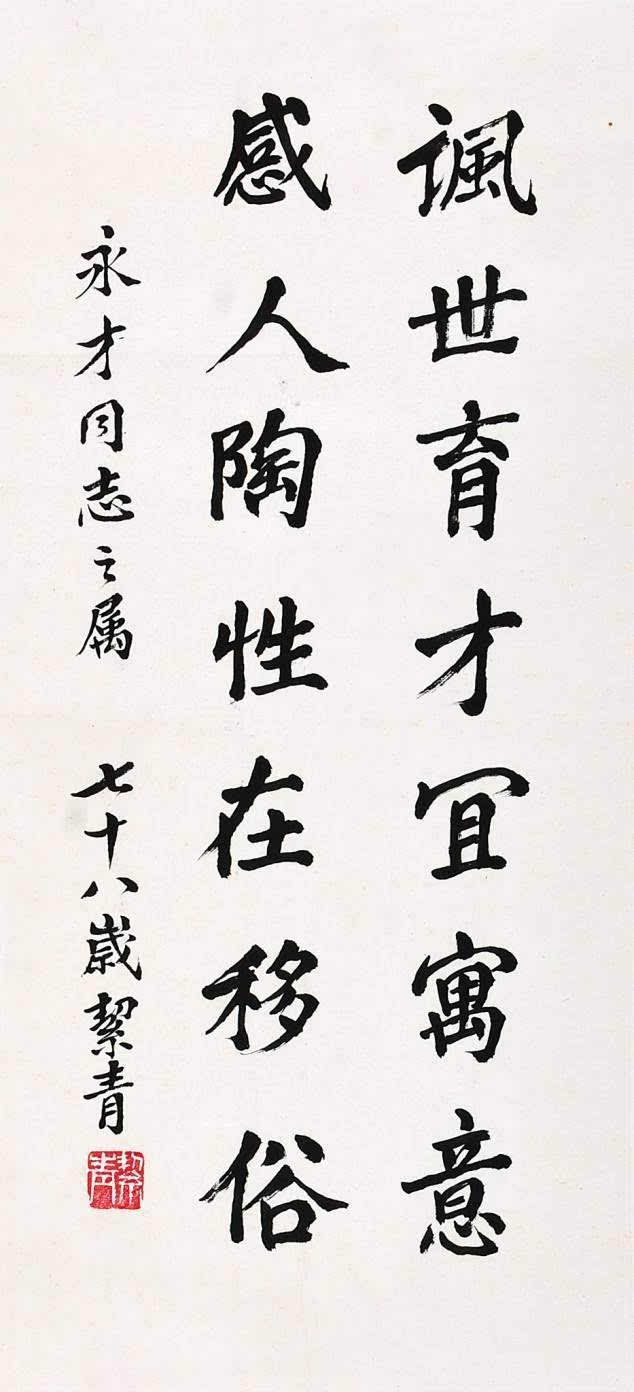 諷世育才冝寓意
感人陶性在移俗
永才同志之属
七十八歲絜青
絜青